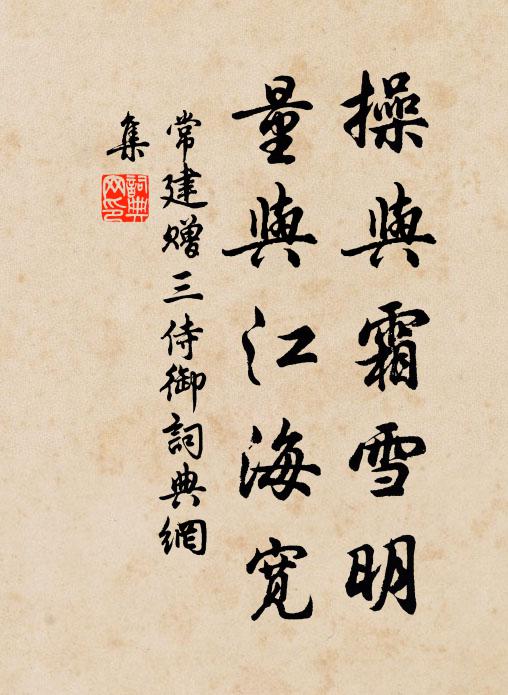 操與霜雪明
量與江海寬
常建贈三侍御詞典網
集
詞典
网印